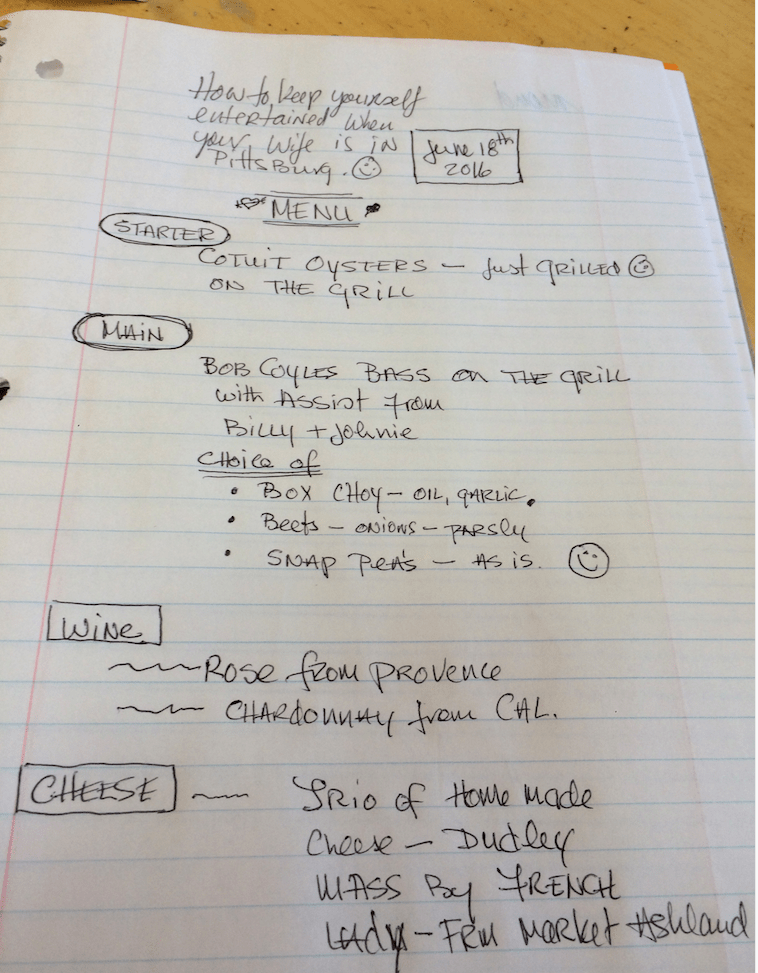 How to keep yourself
entertained when
your wife is in
PittsBurg. ☺
June 18th
2016
MENU
STARTER
COTUIT OYSTERS - just GRILLED ☺
ON THE GRILL
MAIN
BOB COYLES BASS on THE GRILL
with Assist from
Billy + Johnie
CHOICE of
• BOX CHOY - OIL, GARLIC.
• Beets - ONIONS - PARSLY
• SNAP Pea's - AS is. ☺
WINE
Rose from Provence
CHARDONNAY from CAL.
CHEESE
Trio of Home made
Cheese - Dudley
MASS By FRENCH
LADY - FRM Market Ashland